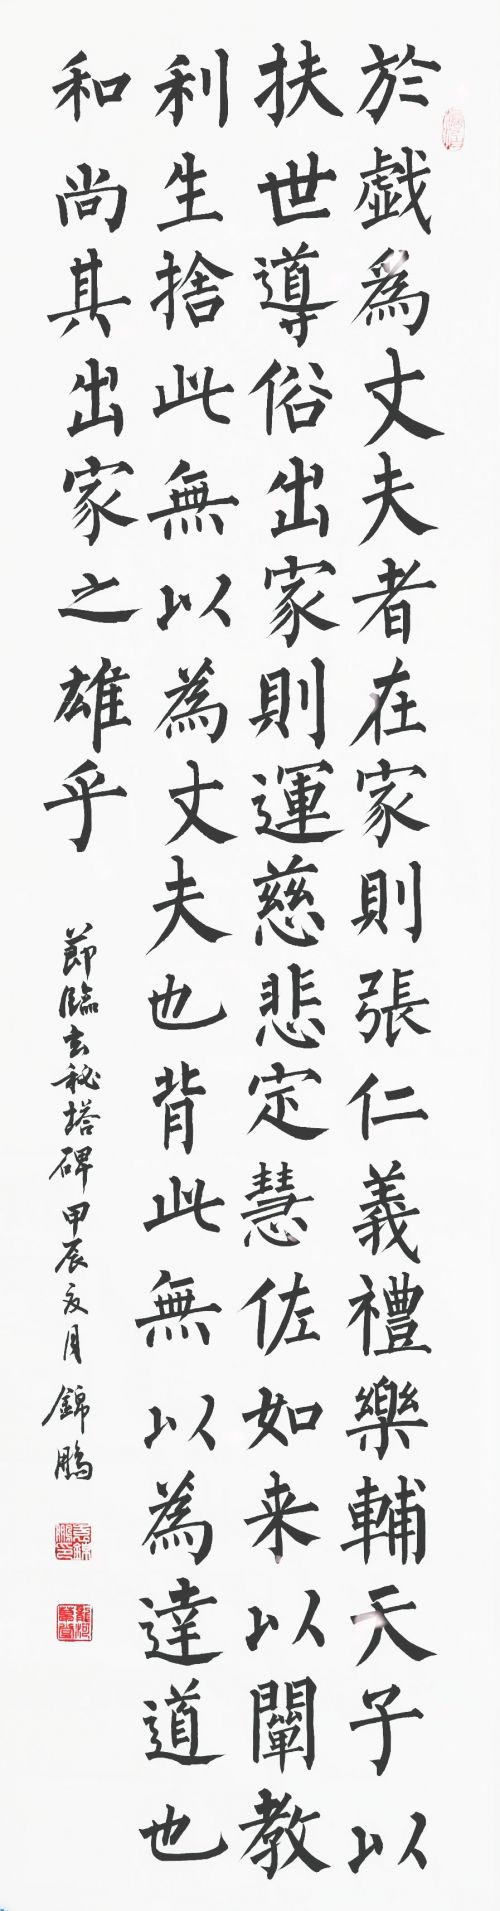 於戯為丈夫者在家則張仁義禮樂輔天子以
扶世導俗出家則運慈悲定慧佐如来以闡教
利生捨此無以為丈夫也背此無以為達道也
和尚其出家之雄乎
節臨玄秘塔碑甲辰夏月 錦鵬